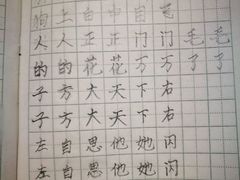 的上白中自毛
人人正正门门毛毛
的的花花万万了了
子方大天下右
子方大天下右
左自思他她闪
左自思他她闪